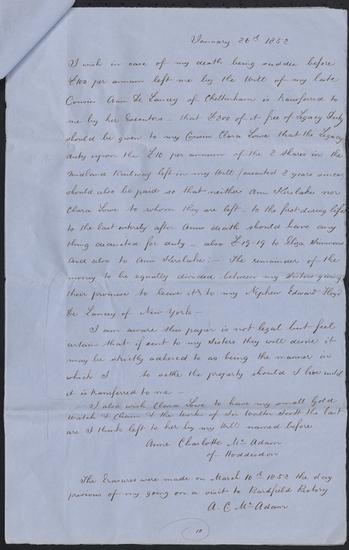 January 26th 1852
I wish in case of my death being sudden before
£100 per annum left me by the Will of my late
Cousin Ann De Lancey of Cheltenham is transferred to
me by her Executors - that £200 of it free of Legacy Duty
should be given to my Cousin Clara Lowe that the Legacy
duty upon the £10 per annum of the 2 shares in the
Midland Railway left in my Will executed 2 years since
should also be paid so that neither Ann Kerslake nor
Clara Lowe to whom they are left - to the first during life
to the last entirely after Anns death should have any
thing deducted for duty - also £19-19 to Eliza Simmons
And also to Ann Kerslake: - The remainder of the
money to be equally divided between my Sisters giving
their promise to leave it to my Nephew Edward Floyd
De Lancey of New York -
I am aware this paper is not legal but feel
certain that if sent to my Sisters they will desire it
may be strictly adhered to as being the manner in
which I to settle the property should I live until
it is transferred to me -
I also wish Clara Lowe to have my small Gold
Watch & Chain & the Works of Sir Walter Scott the last
are I think left to her by my Will named before
Anne Charlotte Mc Adam
of Hoddesdon
The Erasures were made on March 10th 1852 the day
previous of my going on a visit to Bardfield Rectory
A. C Mc Adam
10